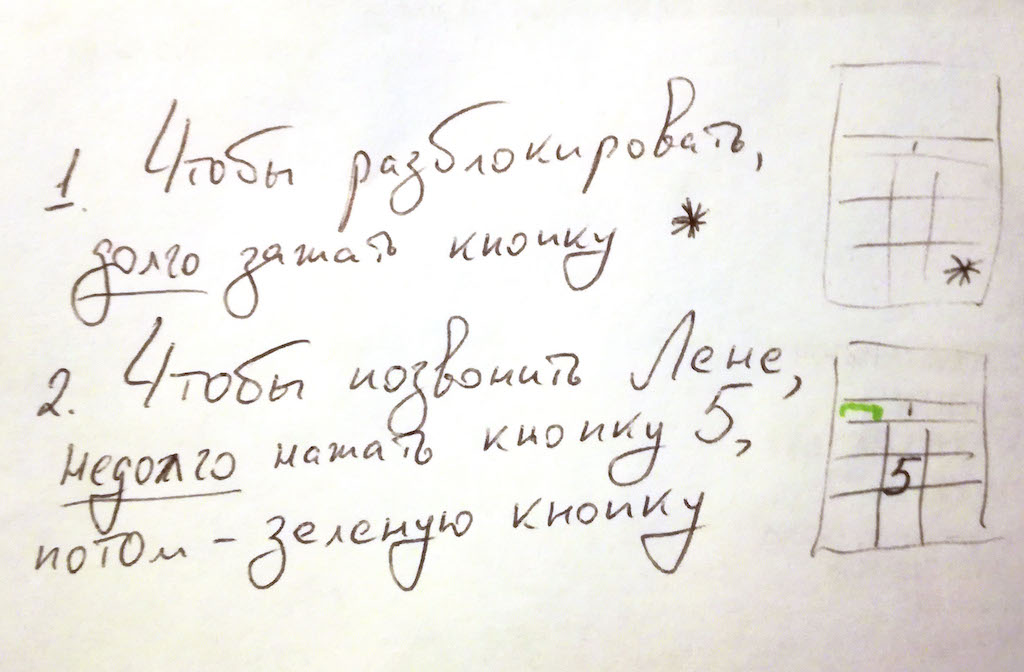 1. Чтобы разблокировать,
долго зажать кнопку *
2. Чтобы позвонить Лене,
недолго нажать кнопку 5,
потом – зеленую кнопку
*
5